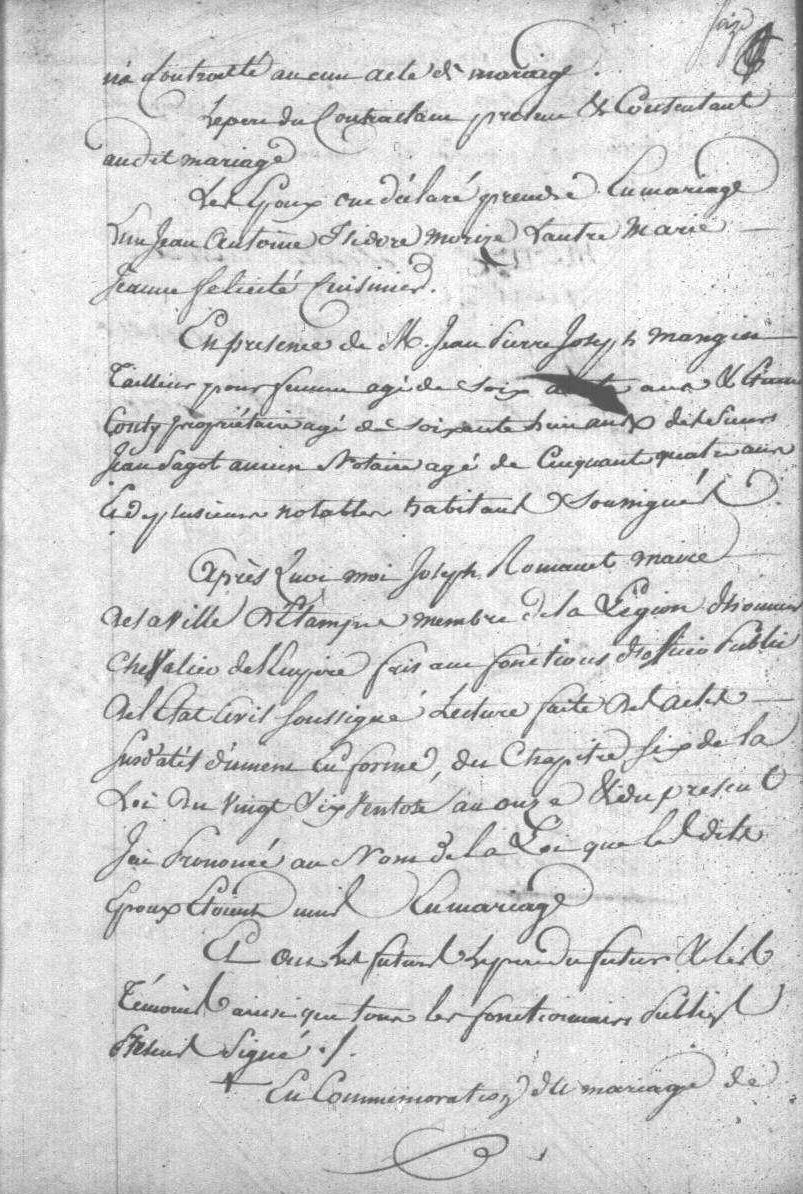 Seize
n'a Contracté aucun acte de mariage.
Le pere du Contractant present & Consentant
audit mariage
Les Epoux ont déclaré prendre En mariage
L'un Jean Antoine Isidore Morize L'autre Marie
Jeanne felicité Cuisinier.
En presence de M. Jean Pierre Joseph Mangin
Tailleur pour femme agé de Soix ans &
Conty propriétaire agé de soixante huit ans desd. Sieurs
Jean Sagot ancien Notaire agé de Cinquante quatre ans
Et de plusieurs notables habitans Soussignés
Après Quoi moi Joseph Romanet maire
De la Ville D'Etampes membre de la Légion d'honneur
Chevalier de l'Empire fais ant fonctions d'officier Public
De l'Etat Civil Soussigné Lecture faite Des actes
Susdatés dument En forme, du Chapitre Six de la
Loi du Vingt Six Ventose an onze & du present
J'ai Prononcé au Nom de la Loi que les dits
Epoux Etoient unis En mariage
Et ont Les futurs Le pere du futur & les
Témoins ainsi que tous les fonctionnaires Publics
Present Signé ./.
+ En Commemoration du mariage de